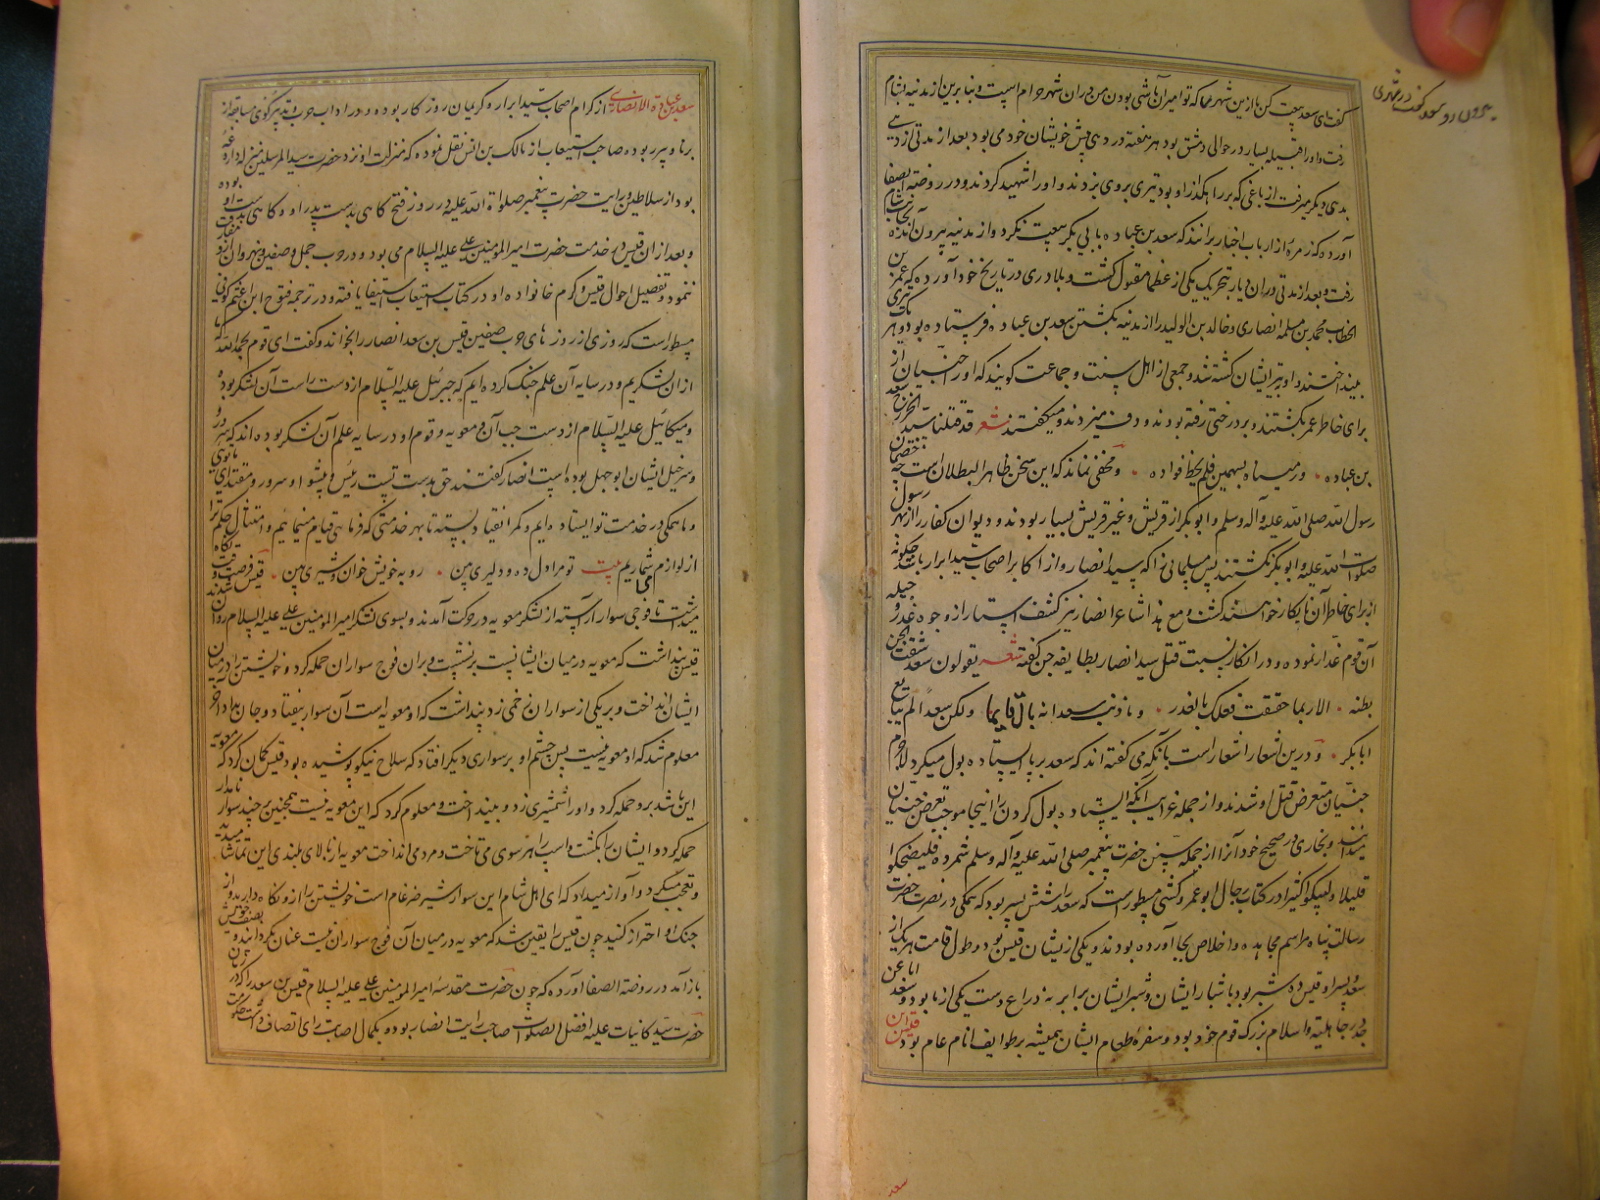 بیرون رو سعد گفت در شهری
گفت ای سعد بیعت کن یا ازین شهر بیرون رو که تو امیر آن باشی بودن من در آن شهر حرام است و بنابرین از مدینه بشام
رفت و او را قبیله بسیار در حوالی دمشق بود هر هفته در دهی پیش خویشان خود می بود بعد از مدتی از دیهی
بدیه دیگر میرفت از باغی که بر راهگذر او بود تیری بروی زدند و او را شهید کردند و در روضة الصفا
آورده که زمره از ارباب اخبار برانند که سعد بن عباده با ابی بکر بیعت نکرد و از مدینه بیرون آمده بجانب شام
رفت و بعد از مدتی در آن دیار بتحریک یکی از عظما مقتول گشت و بلادری در تاریخ خود آورده که عمر بن
الخطاب محمد بن مسلمه انصاری و خالد بن الولید را از مدینه بکشتن سعد بن عباده فرستاده بود و هر یک تیری
بینداختند و او بتیر ایشان کشته شد و جمعی از اهل سنت و جماعت گویند که او را جنیان از
برای خاطر عمر بکشتند و بر درختی رفته بودند و دف میزدند و میگفتند شعر قد قتلنا سید الخزرج سعد
بن عباده ورمیناه بسهمین فلم یخط فواده و مخفی نماند که این سخن ظاهر البطلان است چه خصمان
رسول الله صلی الله علیه وآله وسلم و ابو بکر از قریش و غیر قریش بسیار بودند و دیوان کفار را از بهر رسول
صلوات الله علیه و ابو بکر نکشتند پس مسلمانی را که سید انصار و از اکابر اصحاب سید ابرار باشد چگونه
از برای خاطر آن نابکار خواهند کشت و مع هذا شاعر انصار نیز کشف استار از وجوه غدر و حیله
آن قوم غدار نموده و در انکار نسبت قتل سید انصار بطایفه جن گفته شعر یقولون سعد شقت الجن
بطنه الا ربما حققت فعلک بالغدر وما ذنب سعد انه بال قایما ولکن سعدا لم یبایع
ابابکر و درین اشعار اشعار است بآنکه می گفته اند که سعد بر پا ایستاده بول میکرد لاجرم
جنیان متعرض قتل او شدند و از جمله غرایب آنکه ایستاده بول کردن را اینجا موجب تعرض جنیان
میدانند و بخاری در صحیح خود آنرا از جمله سنن حضرت پیغمبر صلی الله علیه وآله وسلم شمرده فلیضحکوا
قلیلا ولیبکوا کثیرا در کتاب رجال ابو عمرو کشی مسطور است که سعد را شش پسر بود که همگی در نصرت حضرت
رسالت پناه مراسم مجاهده و اخلاص بجا آورده بودند و یکی از ایشان قیس بود و طول قامت هر یک از
سعد و پسر او قیس ده شبر بود باشبار ایشان و شبر ایشان برابر به ذراع دست یکی از ما بود و سعد ابا عن
جد در جاهلیة و اسلام بزرگ قوم خود بود و سفره طعام ایشان همیشه بر طوایف انام عام بود قیس ابن
سعد
سعد بن عباده الانصاری از کرام اصحاب سید ابرار و کریمان روزگار بوده و در آداب حرب و تدبیر گوی مسابقه از
برنا و پیر ربوده صاحب استیعاب از مالک بن انس نقل نموده که منزلت او نزد حضرت سید المرسلین نیز
بود از سلاطین و رایت حضرت پیغمبر صلوات الله علیه در روز فتح گاهی بدست پدر او و گاهی بدست او بوده
و بعد از آن قیس در خدمت حضرت امیر المومنین علی علیه السلام می بود و در حرب جمل و صفین و نهروان
ننمود و تفصیل احوال قیس و کرم خانواده او در کتاب استیعاب استیفا یافته و در ترجمه فتوح ابن اعثم کوفی
مسطور است که روزی از روز های حرب صفین قیس بن سعد انصار را بخواند و گفت ای قوم بحمد الله که ما
از آن لشکریم و در سایه آن علم جنگ کرده ایم که جبرئیل علیه السلام از دست راست آن لشکر بوده
و میکائیل علیه السلام از دست چپ آن و معویه و قوم او در سایه علم آن لشکر بوده اند که سرور
و سرخیل ایشان ابو جهل بوده است انصار گفتند حق بدست تست رئیس و پیشوا و سرور و مقتدای ما توئی
و ما همگی در خدمت تو ایستاده ایم و کمر انقیاد بسته تا بهر خدمتی که فرمائی قیام مینمائیم و امتثال حکم ترا
از لوازم می شماریم بیت تو مرا دل ده و دلیری بین رو به خویش خوان و شیری بین قیس فرصت نگاه
میداشت تا فوجی سوار آراسته از لشکر معویه در حرکت آمدند و بسوی لشکر امیر المومنین علی علیه السلام روان شدند
قیس پنداشت که معویه در میان ایشانست برنشست و بر آن فوج سواران حمله کرد و خویشتن را در میان
ایشان انداخت و بر یکی از سواران زخمی زد پنداشت که او معویه است آن سوار بیفتاد و جان بداد آخر
معلوم شد که او معویه نیست پس چشم او بر سواری دیگر افتاد که سلاح نیکو پوشیده بود قیس گمان کرد که معویه
این باشد برو حمله کرد و او را شمشیری زد و بینداخت و معلوم کرد که این معویه نیست همچنین بر چند سوار نامدار
حمله کرد و ایشان را بکشت و اسب را هر سوی می تاخت و مردمی انداخت معویه از بالای بلندی این تماشا میدید
و تعجب میکرد و آواز میداد که ای اهل شام این سوار شیر ضرغام است خویشتن را ازو نگاه دارید و از
جنگ او احتراز کنید چون قیس را یقین شد که معویه در میان آن فوج سواران نیست عنان بگردانید و بصف خویش
باز آمد در روضة الصفا آورده که چون حضرت مقدسه امیر المومنین علی علیه السلام قیس بن سعد را که در زمان
حضرت سید کاینات علیه افضل الصلوات صاحب رایت انصار بود و بکمال اصابت رای اتصاف داشت